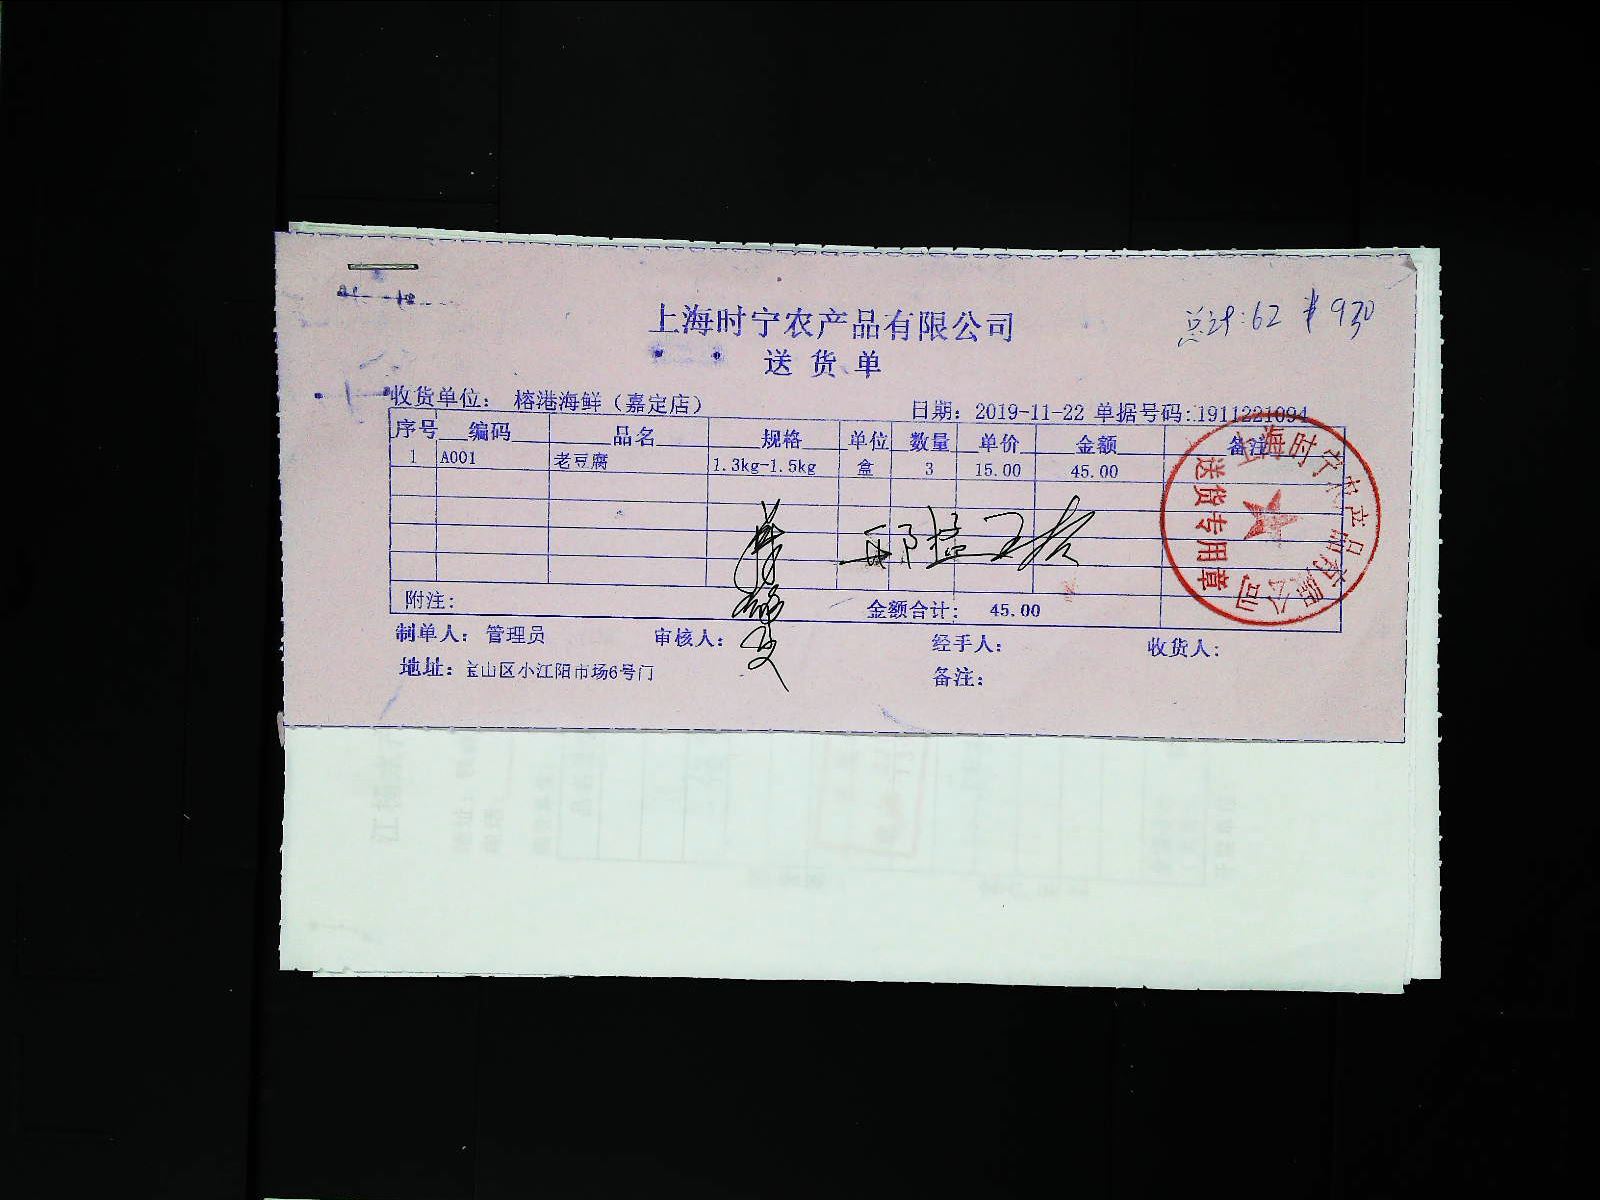 总计:62 ¥930
上海时宁农产品有限公司
送货单
收货单位: 榕港海鲜(嘉定店) 日期: 2019-11-22 单据号码:1911221094
序号 编码 品名 规格 单位 数量 单价 金额 备注
1 A001 老豆腐 1.3kg-1.5kg 盒 3 15.00 45.00
附注: 金额合计: 45.00
制单人: 管理员 审核人: 经手人: 收货人:
地址: 宝山区小江阳市场6号门 备注:
上海时宁农产品有限公司
送货专用章